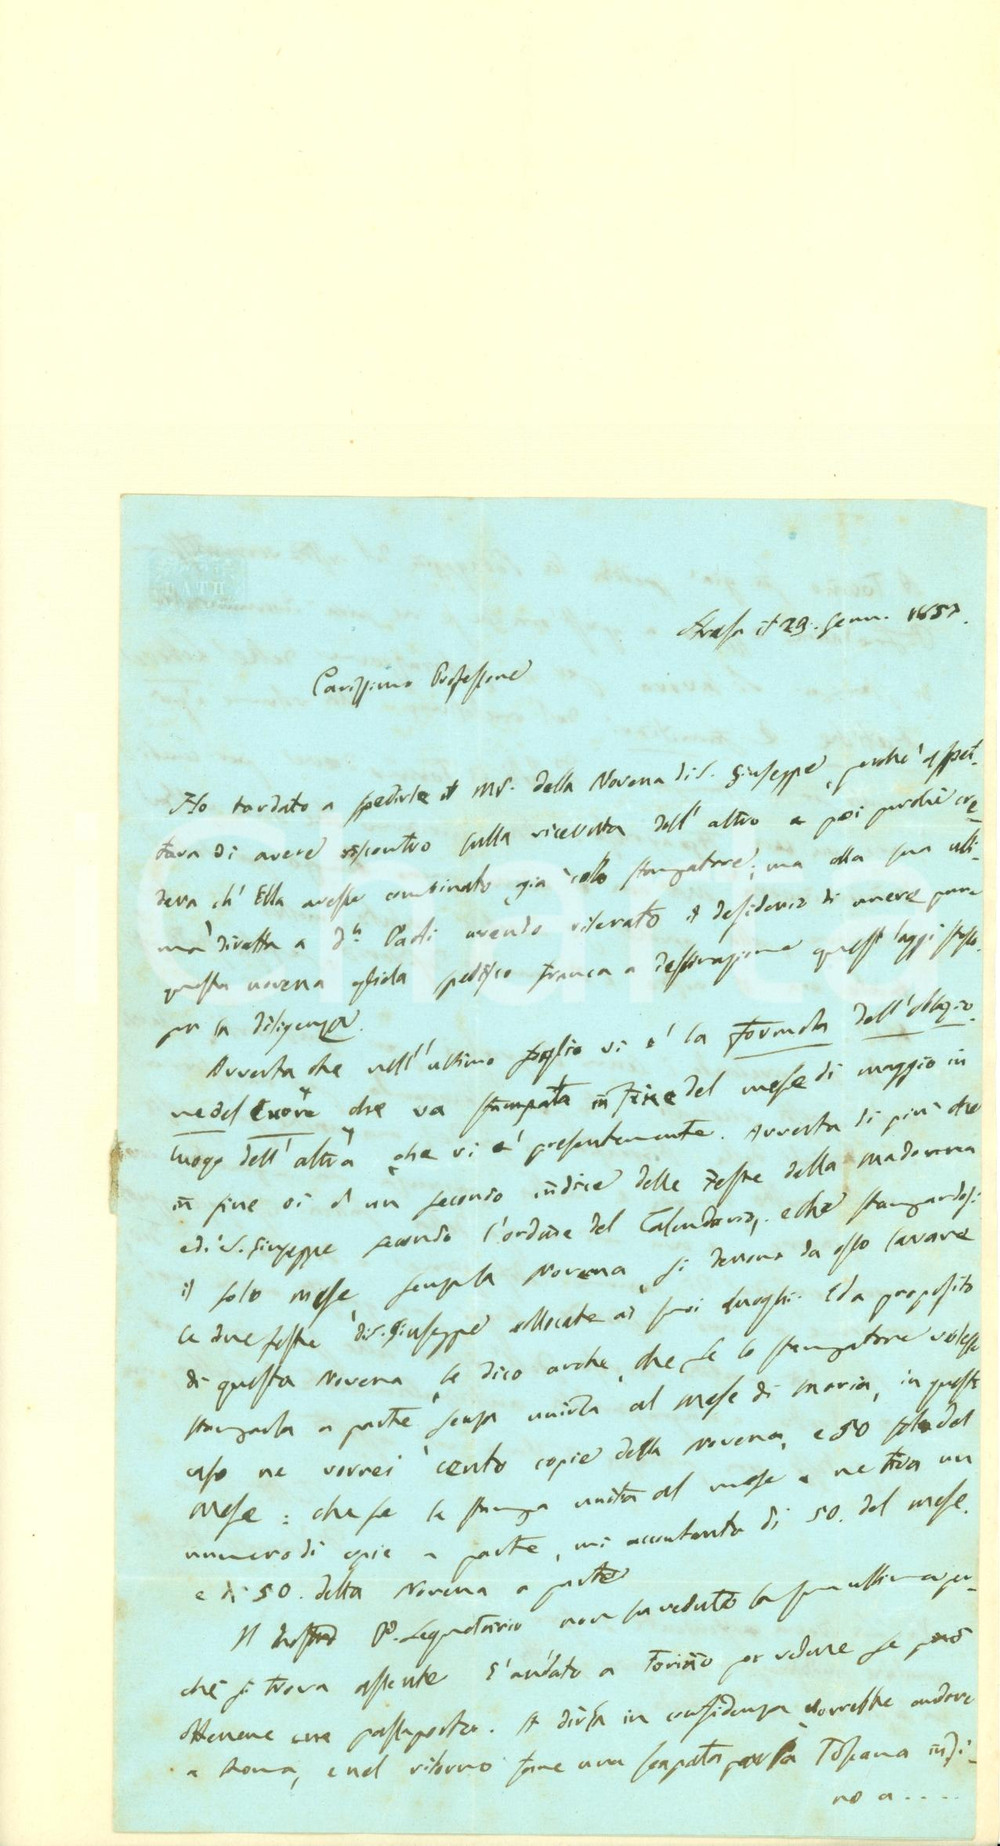 Stresa il 29. Genn. 1857.
Carissimo Professore
Ho tardato a spedirle il MS. della Novena di S. Giuseppe, perchè aspet-
tava di avere riscontro sulla ricevuta dell'altro e poi perchè cre-
deva ch'Ella avesse combinato già collo stampatore; ma alla sua ulti-
ma diretta a D.n Paoli avendo rilevato il desiderio di avere pure
questa novena gliela spedisco franca a destinazione quest'oggi stesso
per la diligenza.
Avverta che nell'ultimo foglio vi è la formola dell'oblazio
ne del cuore che va stampata in fine del mese di maggio in
luogo dell'altra che vi è presentemente. Avverta di più che
in fine vi è un secondo indice delle Feste della Madonna
e di S. Giuseppe secondo l'ordine del Calendario, e che stampandosi
il solo mese senza la Novena, si devono da esso levare
le due feste di S. Giuseppe collocate ai suoi luoghi. Ed a proposito
di questa Novena le dico anche, che se lo stampatore volesse
stamparla a parte senza unirla al Mese di Maria, in questo
caso ne vorrei cento copie della Novena, e 50 sole del
Mese: che se la stampa unita al mese e ne tira un
numero di copie a parte, mi accontento di 50. del mese.
e di 50. della Novena a parte
Il nostro P. Segretario non ha veduto la sua ultima per-
chè si trova assente È andato a Torino per vedere se può
ottenere un passaporto. A dirla in confidenza vorrebbe andare
a Roma, e nel ritorno fare una scappata per la Toscana infi-
no a ....
Charta